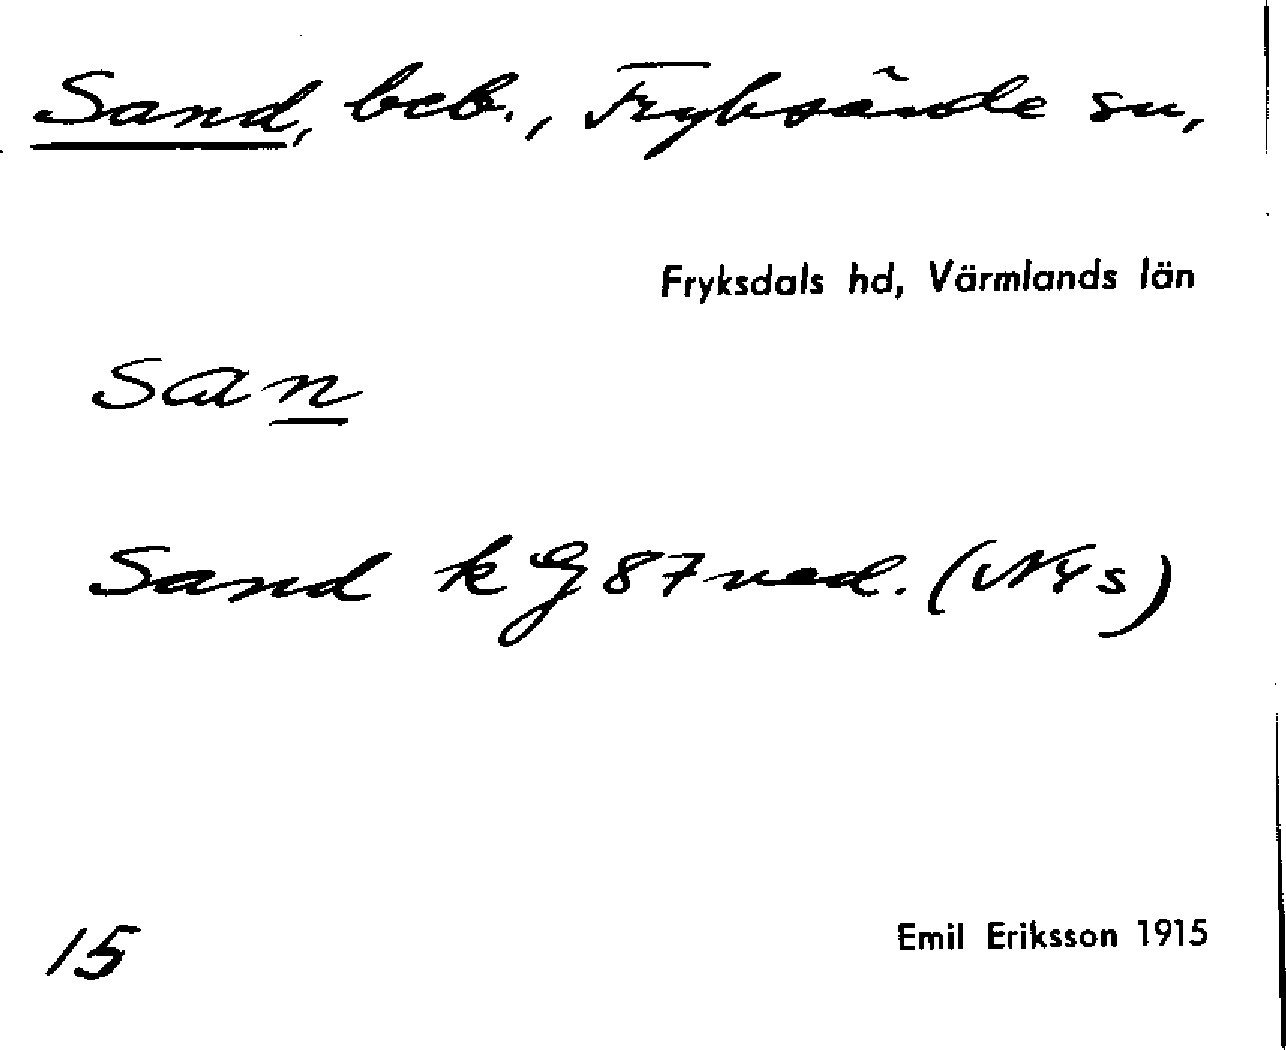 Sand, beb., Fryksände sn,
Fryksdals hd, Värmlands län
san
Sand k G 87 ned. (NYs)
15
Emil Eriksson 1915